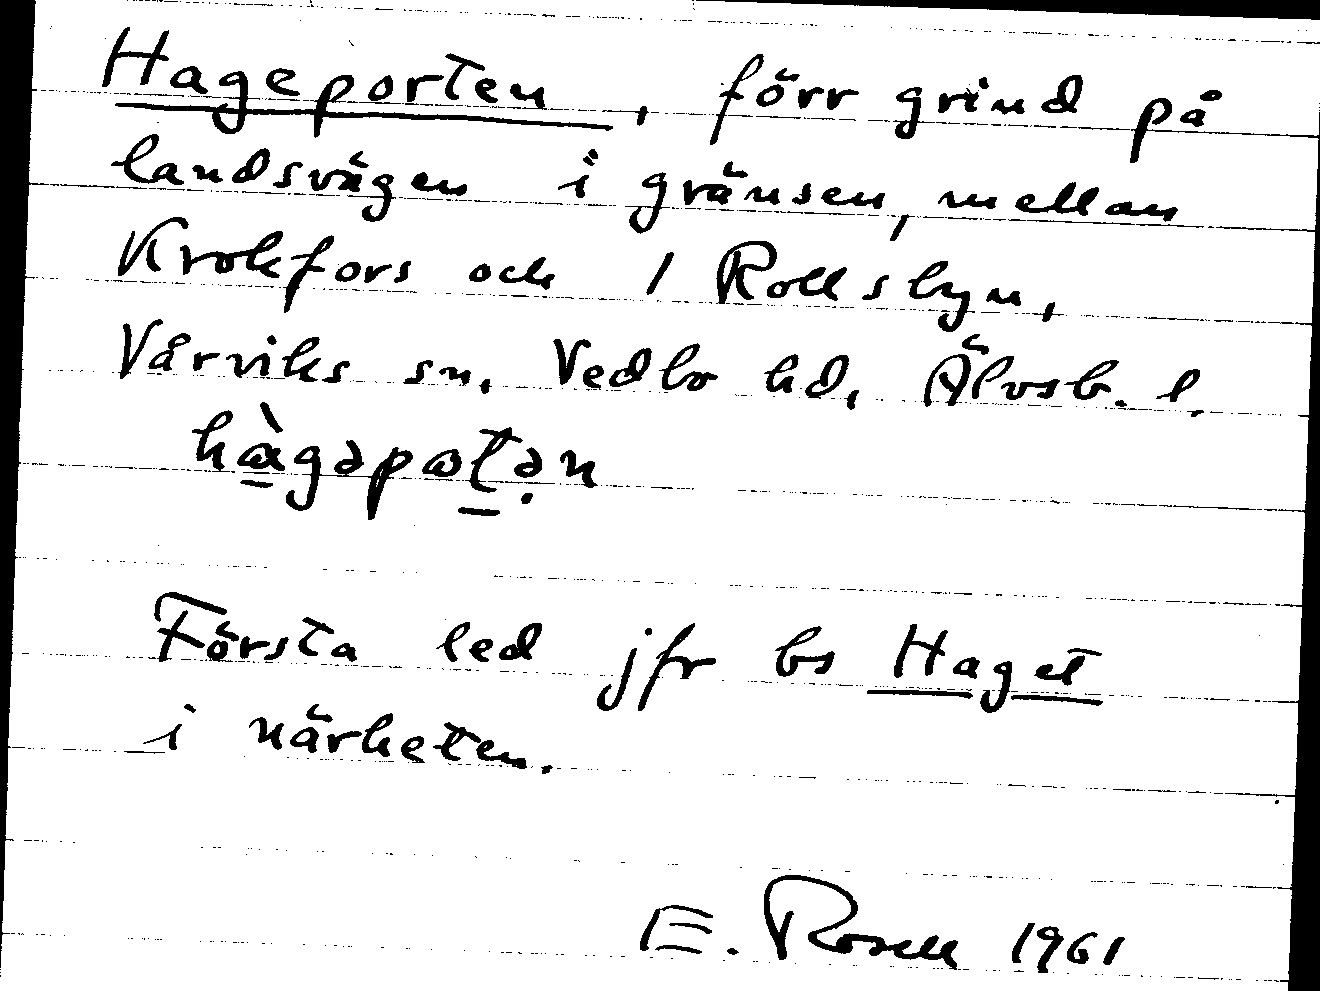 Hageporten, förr grind på
landsvägen i gränsen, mellan
Krokfors och / Rollsbyn,
Vårviks sn, Vedbo hd, Älvsb. l.
hàgəpoṯə̣n
Första led jfr bs Haget
i närheten.
E. Rosell 1961